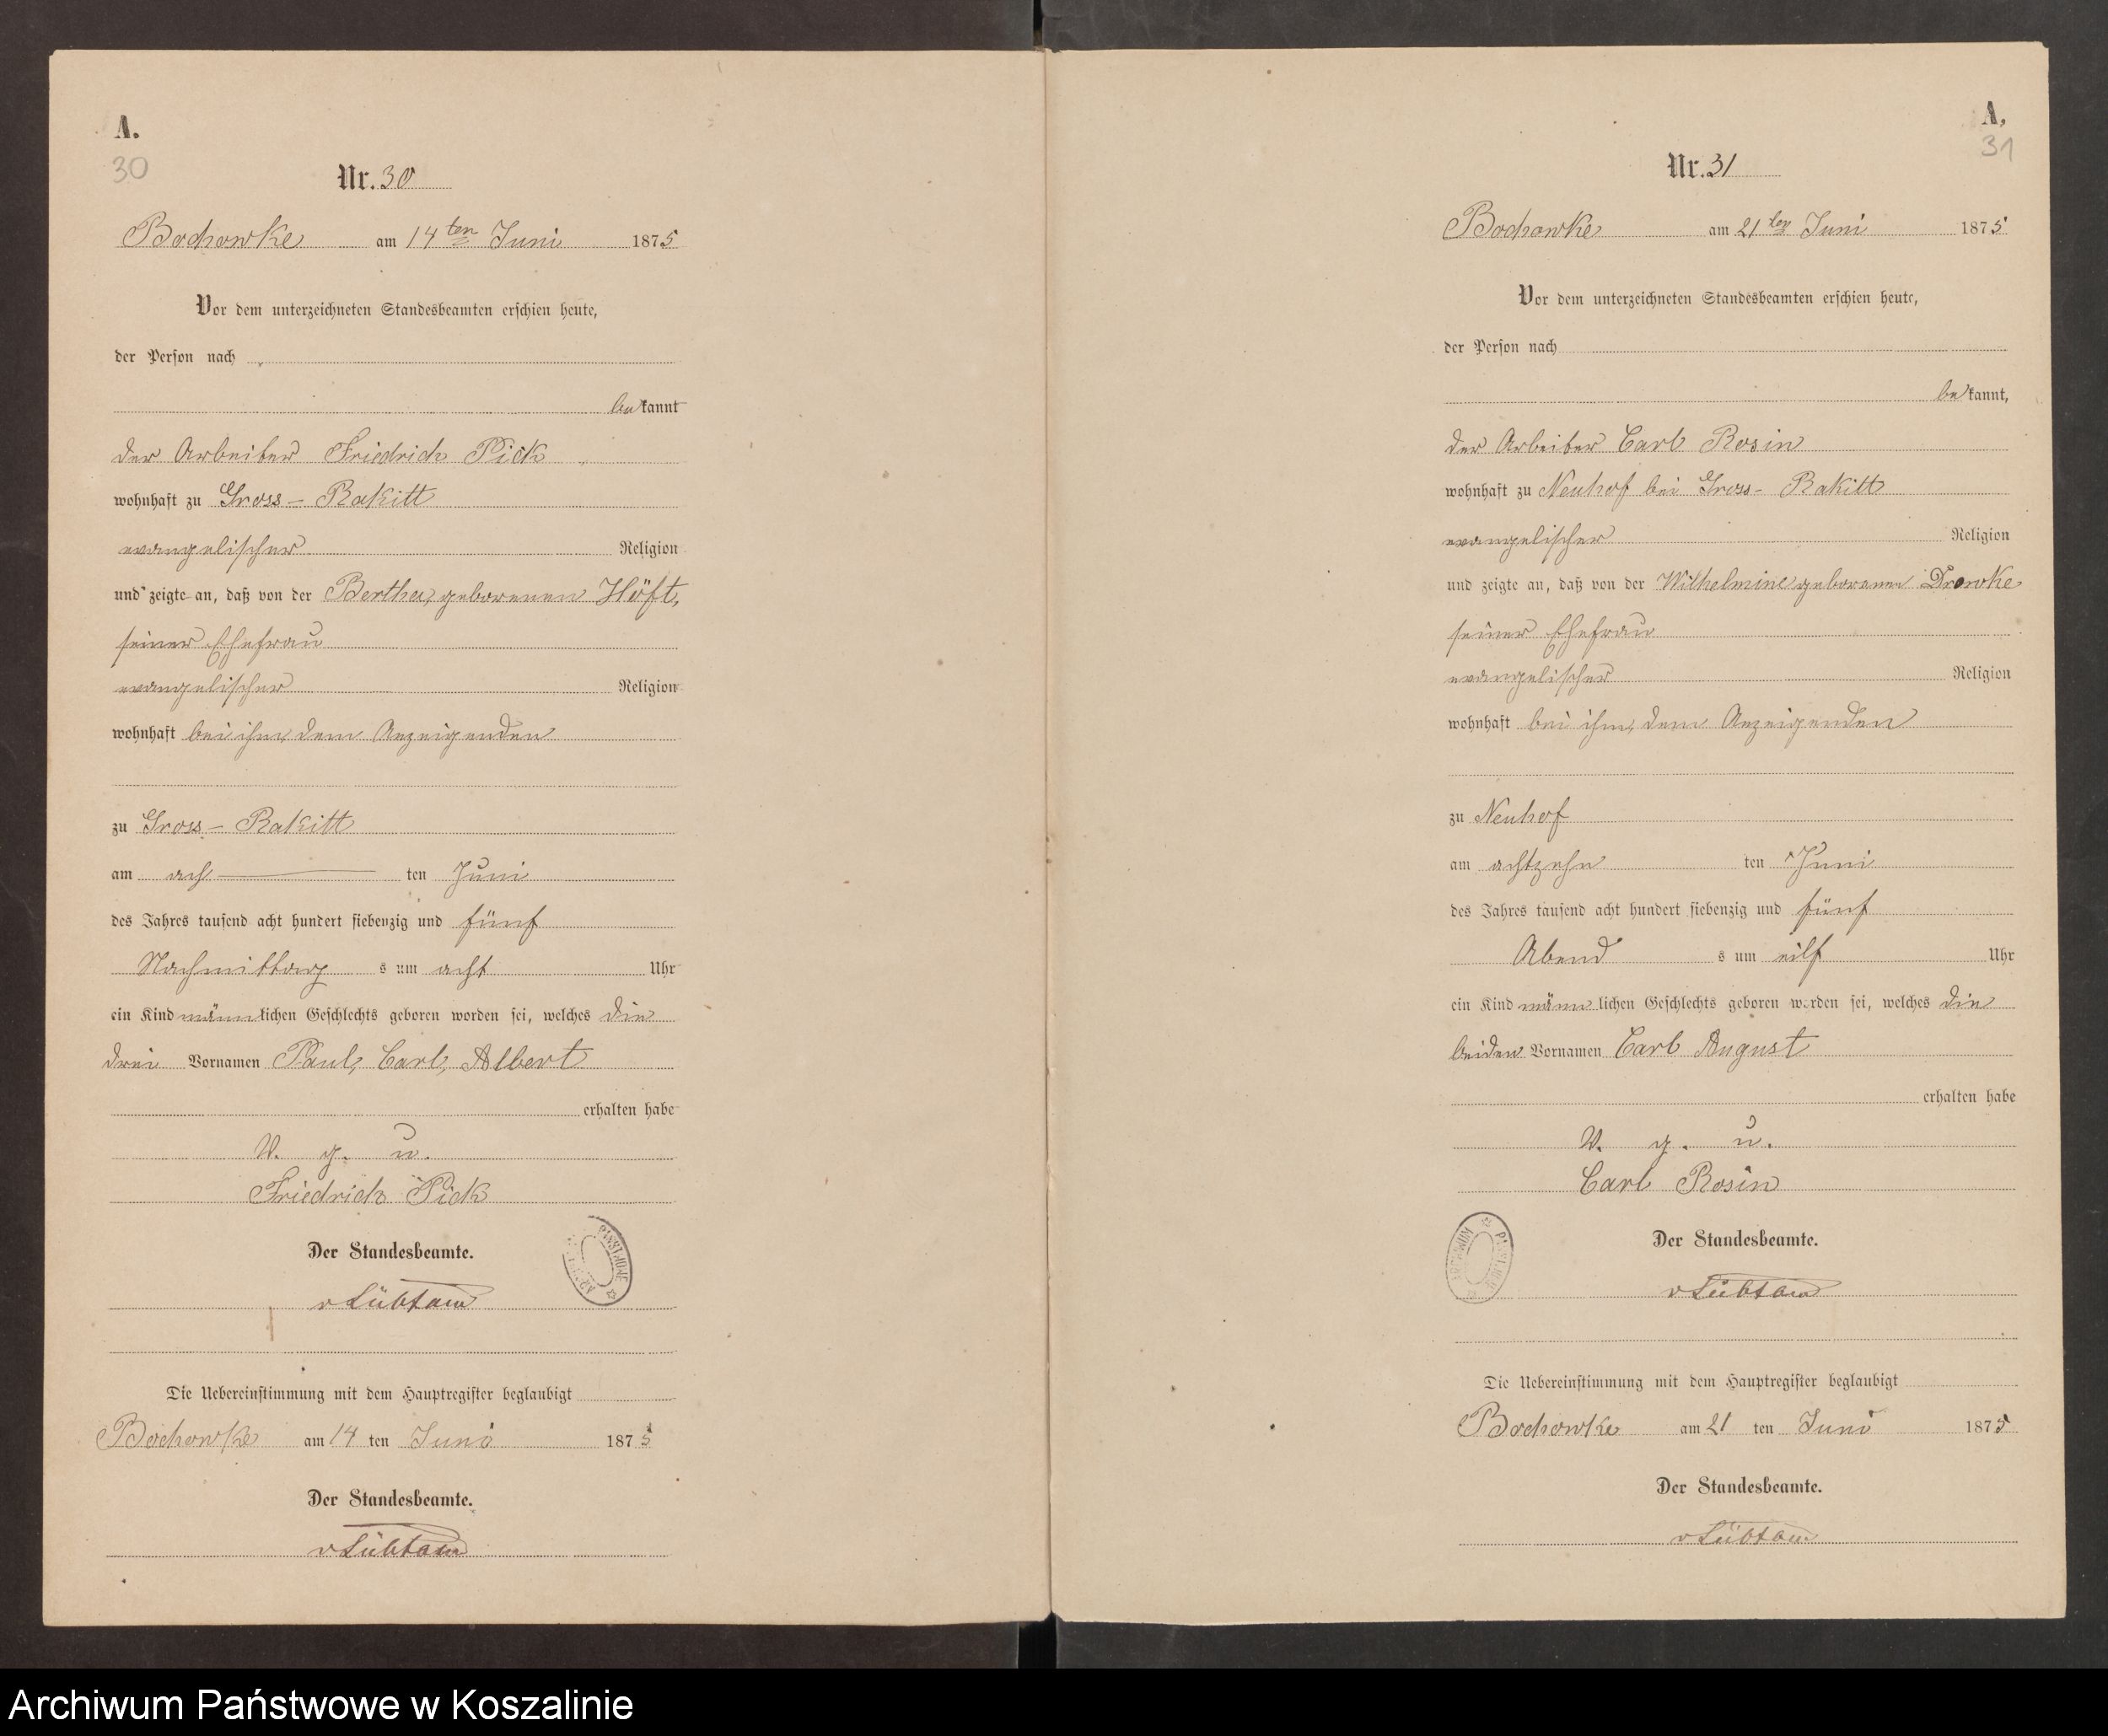 A.
30
Nr. 30
Bochowke am 14ten Juni 1875
Vor dem unterzeichneten Standesbeamten erschien heute,
der Person nach
bekannt
der Arbeiter Friedrich Pick
wohnhaft zu Gross-Rakitt
evangelischer Religion
und zeigte an, daß von der Bertha, geborenen Höft,
seiner Ehefrau
evangelischer Religion
wohnhaft bei ihm, dem Anzeigenden
zu Gross-Rakitt
am ach ten Juni
des Jahres tausend acht hundert siebenzig und fünf
Nachmittag s um acht Uhr
ein Kind männlichen Geschlechts geboren worden sei, welches die
drei Vornamen Paul, Carl, Albert
erhalten habe
V. g. u.
Friedrich Pick
Der Standesbeamte.
v Lübtow
Die Uebereinstimmung mit dem Hauptregister beglaubigt
Bochowke am 14 ten Juni 1875
Der Standesbeamte.
v Lübtow
A.
31
Nr. 31
Bochowke am 21ten Juni 1875
Vor dem unterzeichneten Standesbeamten erschien heute,
der Person nach
bekannt,
der Arbeiter Carl Rosin
wohnhaft zu Neuhof bei Gross-Rakitt
evangelischer Religion
und zeigte an, daß von der Wilhelmine geborenen Drewke
seiner Ehefrau
evangelischer Religion
wohnhaft bei ihm, dem Anzeigenden
zu Neuhof
am achtzehn ten Juni
des Jahres tausend acht hundert siebenzig und fünf
Abend s um eilf Uhr
ein Kind männlichen Geschlechts geboren worden sei, welches die
beiden Vornamen Carl August
erhalten habe
V. g. u.
Carl Rosin
ARCHIWUM PAŃSTWOWE
Der Standesbeamte.
v Lübtow
Die Uebereinstimmung mit dem Hauptregister beglaubigt
Bochowke am 21 ten Juni 1875
Der Standesbeamte.
v Lübtow
Archiwum Państwowe w Koszalinie